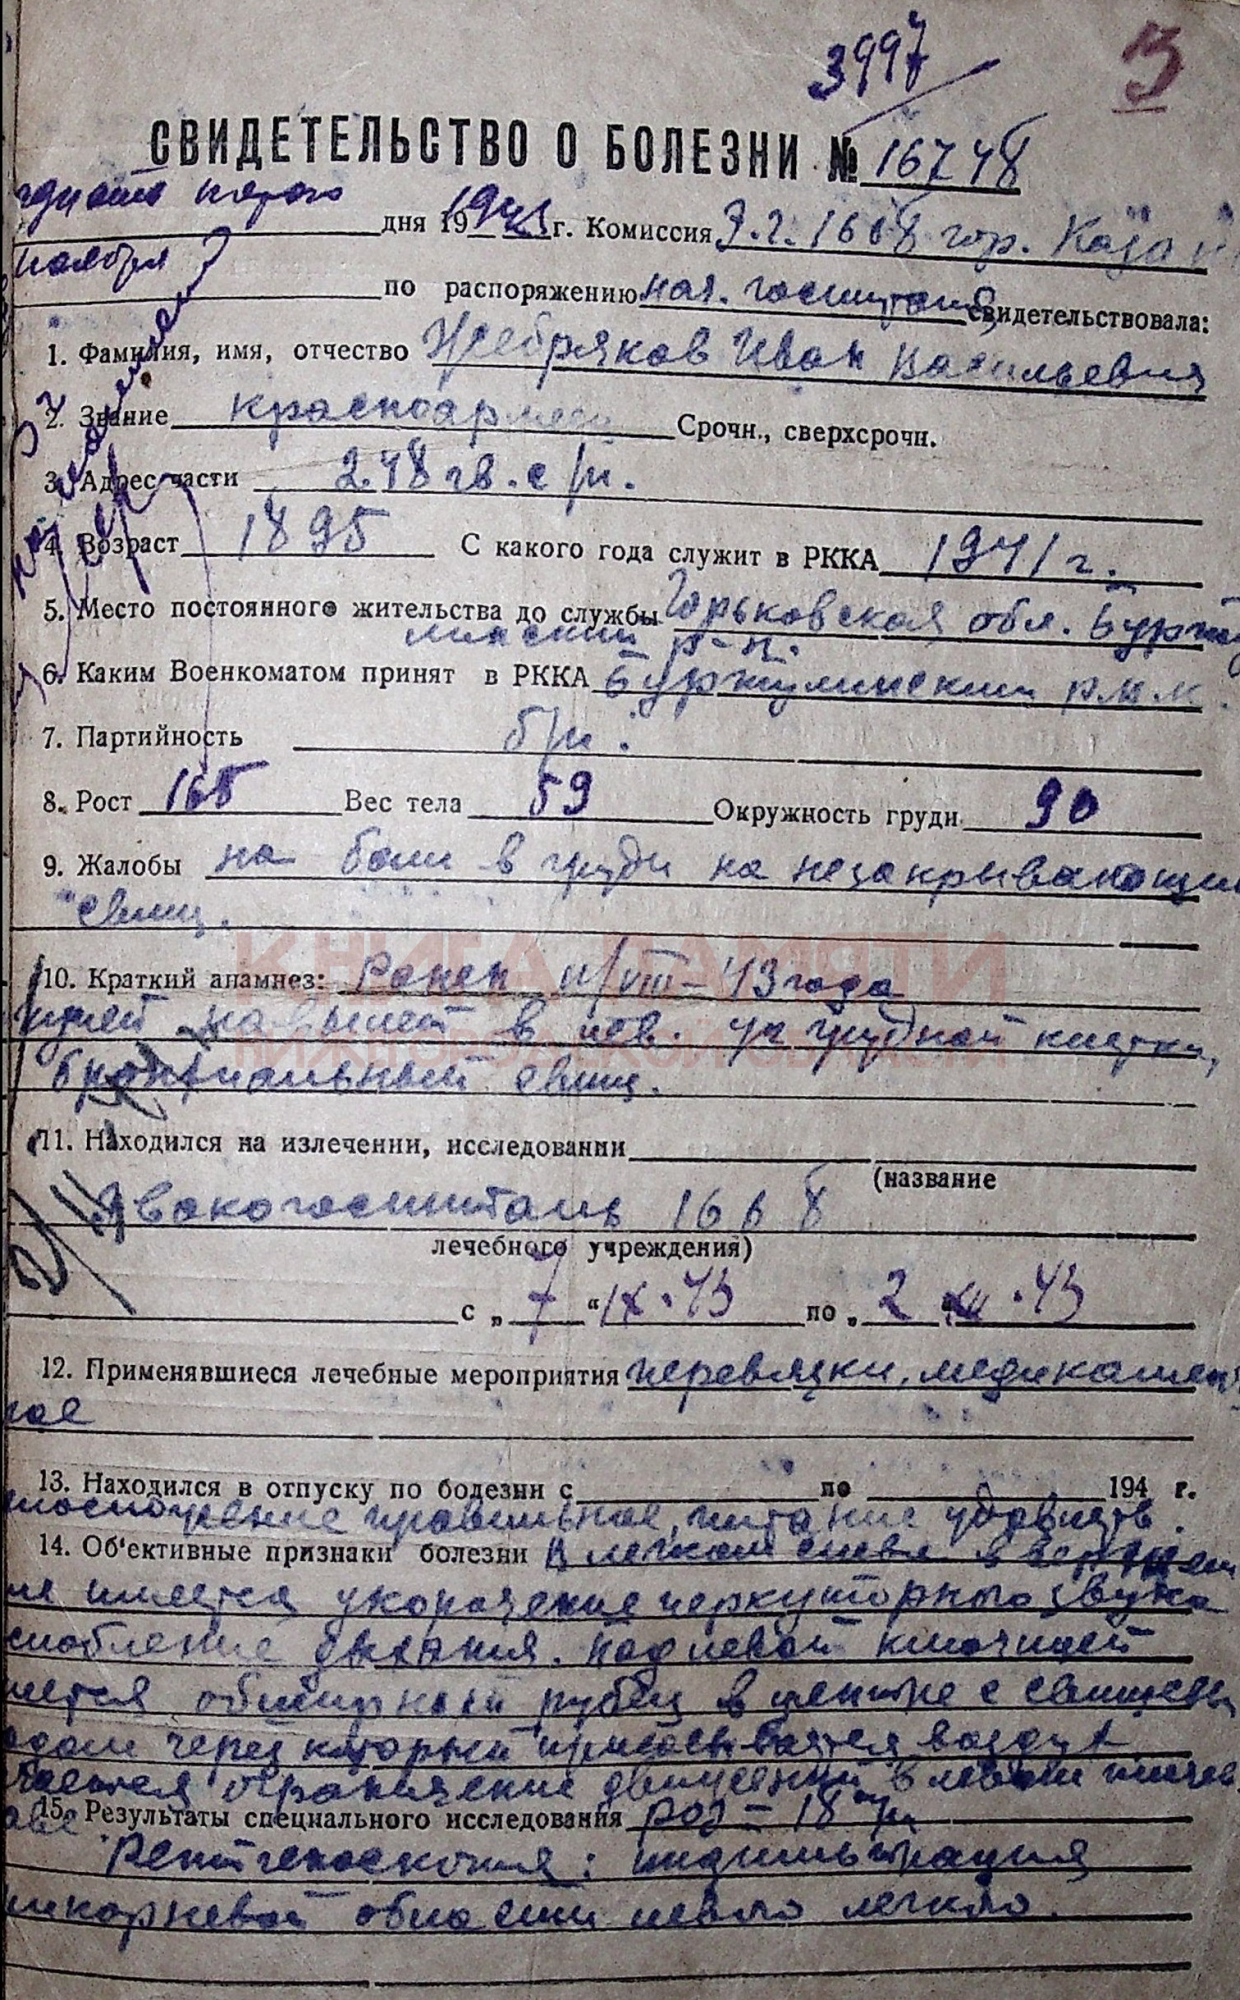 3997
3
СВИДЕТЕЛЬСТВО О БОЛЕЗНИ № 16748
первого дня 1943 г. Комиссия Э.г. 1668 гор. Каза
ноября по распоряжению нач. госпиталя свидетельствовала:
1. Фамилия, имя, отчество Жребряков Иван Васильевич
2. Звание красноармеец Срочн., сверхсрочн.
3. Адрес части 248 гв. с/п.
4. Возраст 1895 С какого года служит в РККА 1941 г.
5. Место постоянного жительства до службы Горьковская обл.
р-н.
6. Каким Военкоматом принят в РККА
7. Партийность б/п.
8. Рост 165 Вес тела 59 Окружность груди 90
9. Жалобы на боли в груди на незакрывающий
свищ.
КНИГА ПАМЯТИ
НИЖЕГОРОДСКОЙ ОБЛАСТИ
10. Краткий анамнез: Ранен 11/VIII-43 года
пулей навылет в лев. 1/2 грудной клетки,
бронхиальный свищ.
11. Находился на излечении, исследовании
(название
Эвакогоспиталь 1668
лечебного учреждения)
с „ 7 “ IX.43 по „ 2 “ XII.43
12. Применявшиеся лечебные мероприятия перевязки, медикамент
ное
13. Находился в отпуску по болезни с по 194 г.
телосложение правильное, питание удовлетв.
14. Об'ективные признаки болезни В легком слева в
ле имеется укорочение перкуторного звука
слабление дыхания. Под левой ключицей
еется обширный рубец в центре с свищевы
одом через который присасывается воздух
ограничение движений в левом плечев.
аве.
15. Результаты специального исследования роэ - 18 м/м
Рентгеноскопия: инфильтрация
икорневой области левого легкого.